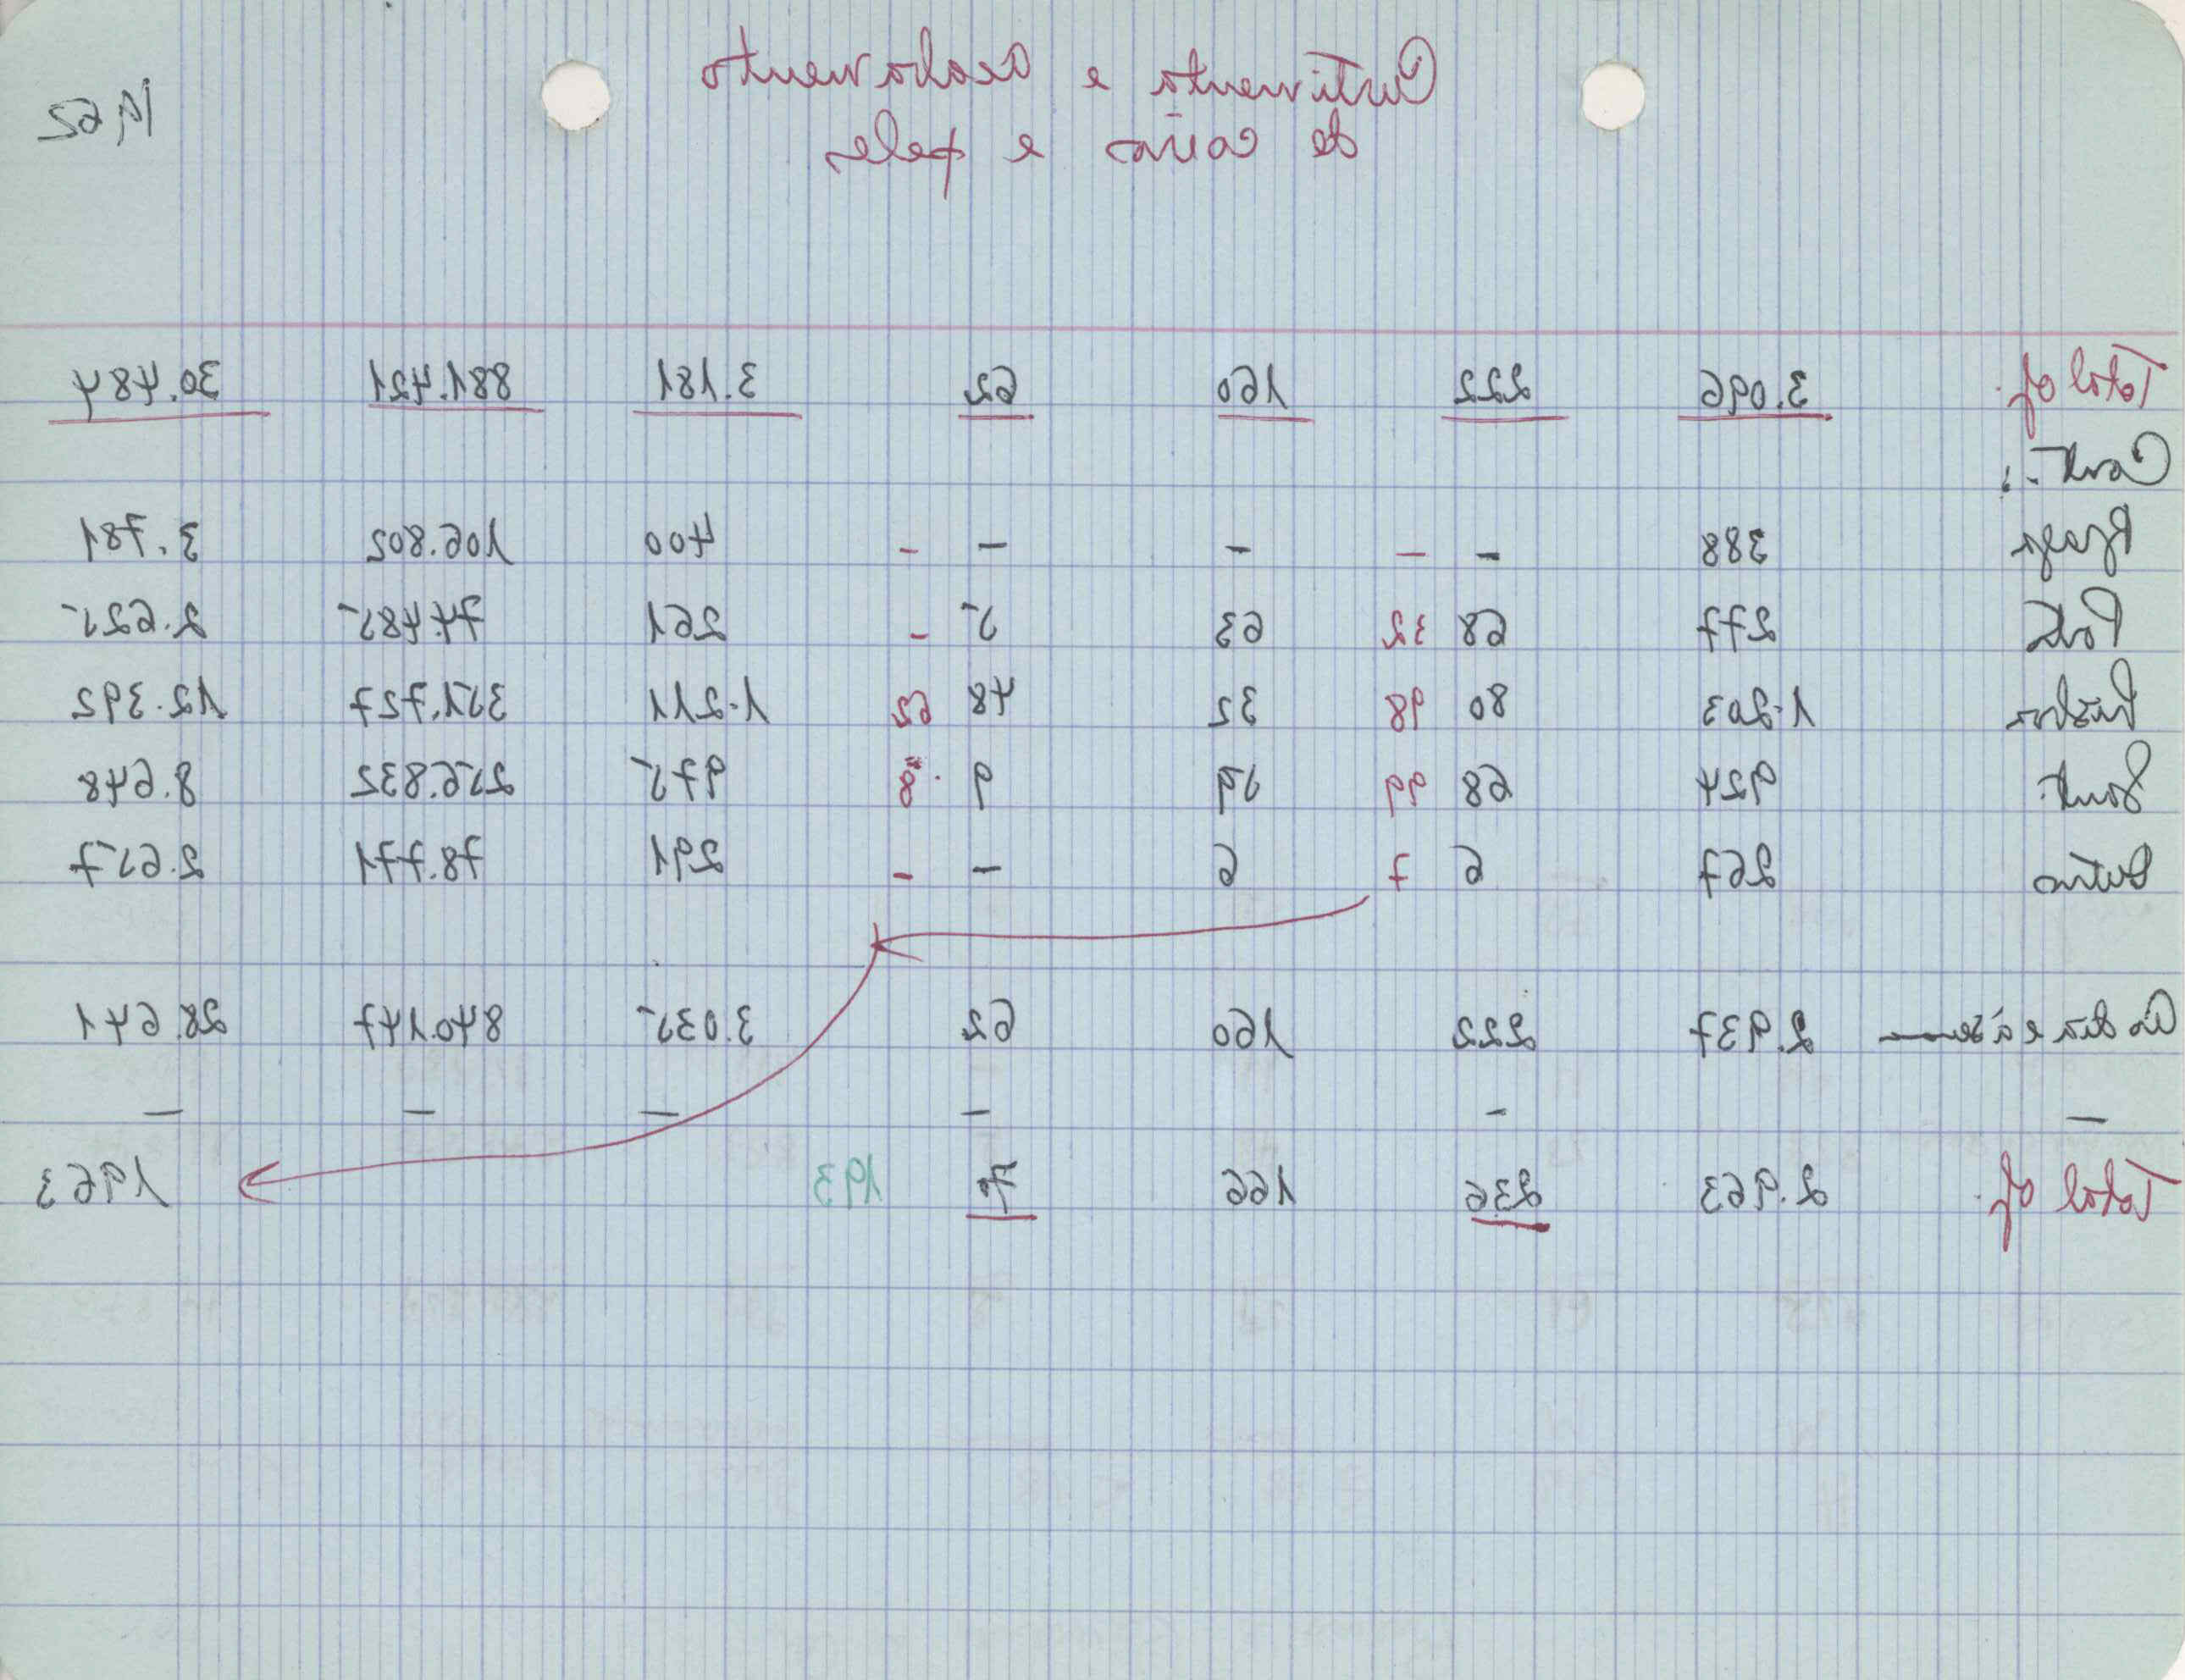 Curtimenta e acabamento
de couros e peles
1962
Total of. 3.096 222 160 62 3.181 881.421 30.484
Cont.:
Braga 388 - - - - - 400 106.802 3.781
Porto 277 68 32 63 5 - 261 74.485 2.625
Lisboa 1.203 80 98 32 48 62 1.211 351.727 12.392
Sant. 924 68 99 59 9 8 975 256.832 8.648
Outros 267 6 7 6 - - 291 78.771 2.657
Ao dia e à sem 2.937 222 160 62 3.035 840.147 28.641
- - - - - -
Total of. 2.963 236 166 70 193 1963